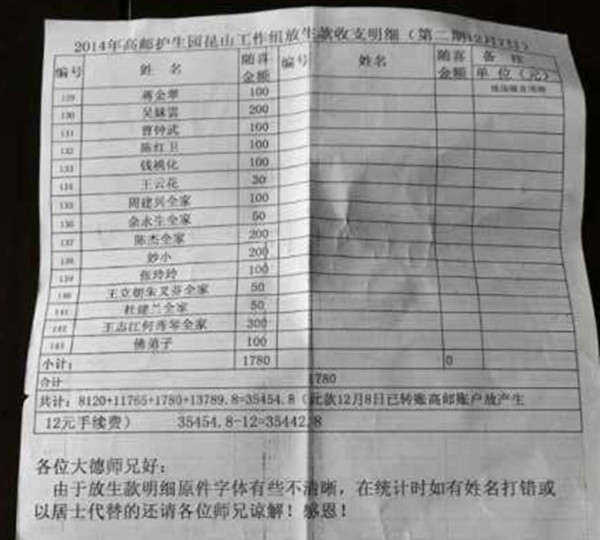 2014年高邮护生园昆山工作组放生款收支明细(第二期12月7日)
编号 姓 名 随喜金额 编号 姓名 随喜金额 备 注 单 位(元)
129 蒋金翠 100
130 吴妹雲 200
131 曹钟武 100
132 陈红卫 100
133 钱桃化 100
134 王云花 30
135 周建兴全家 100
136 余永生全家 50
137 陈杰全家 200
138 妙小 200
139 张玲玲 100
140 王立朝朱文芬全家 50
141 杜建兰全家 50
142 王志江何秀琴全家 300
143 佛弟子 100
小计: 1780 0
合计 1780
共计:8120+11765+1780+13789.8=35454.8(此款12月8日已转账高邮账户放产生
12元手续费) 35454.8-12=35442.8
各位大德师兄好:
由于放生款明细原件字体有些不清晰,在统计时如有姓名打错或
以居士代替的还请各位师兄谅解!感恩!